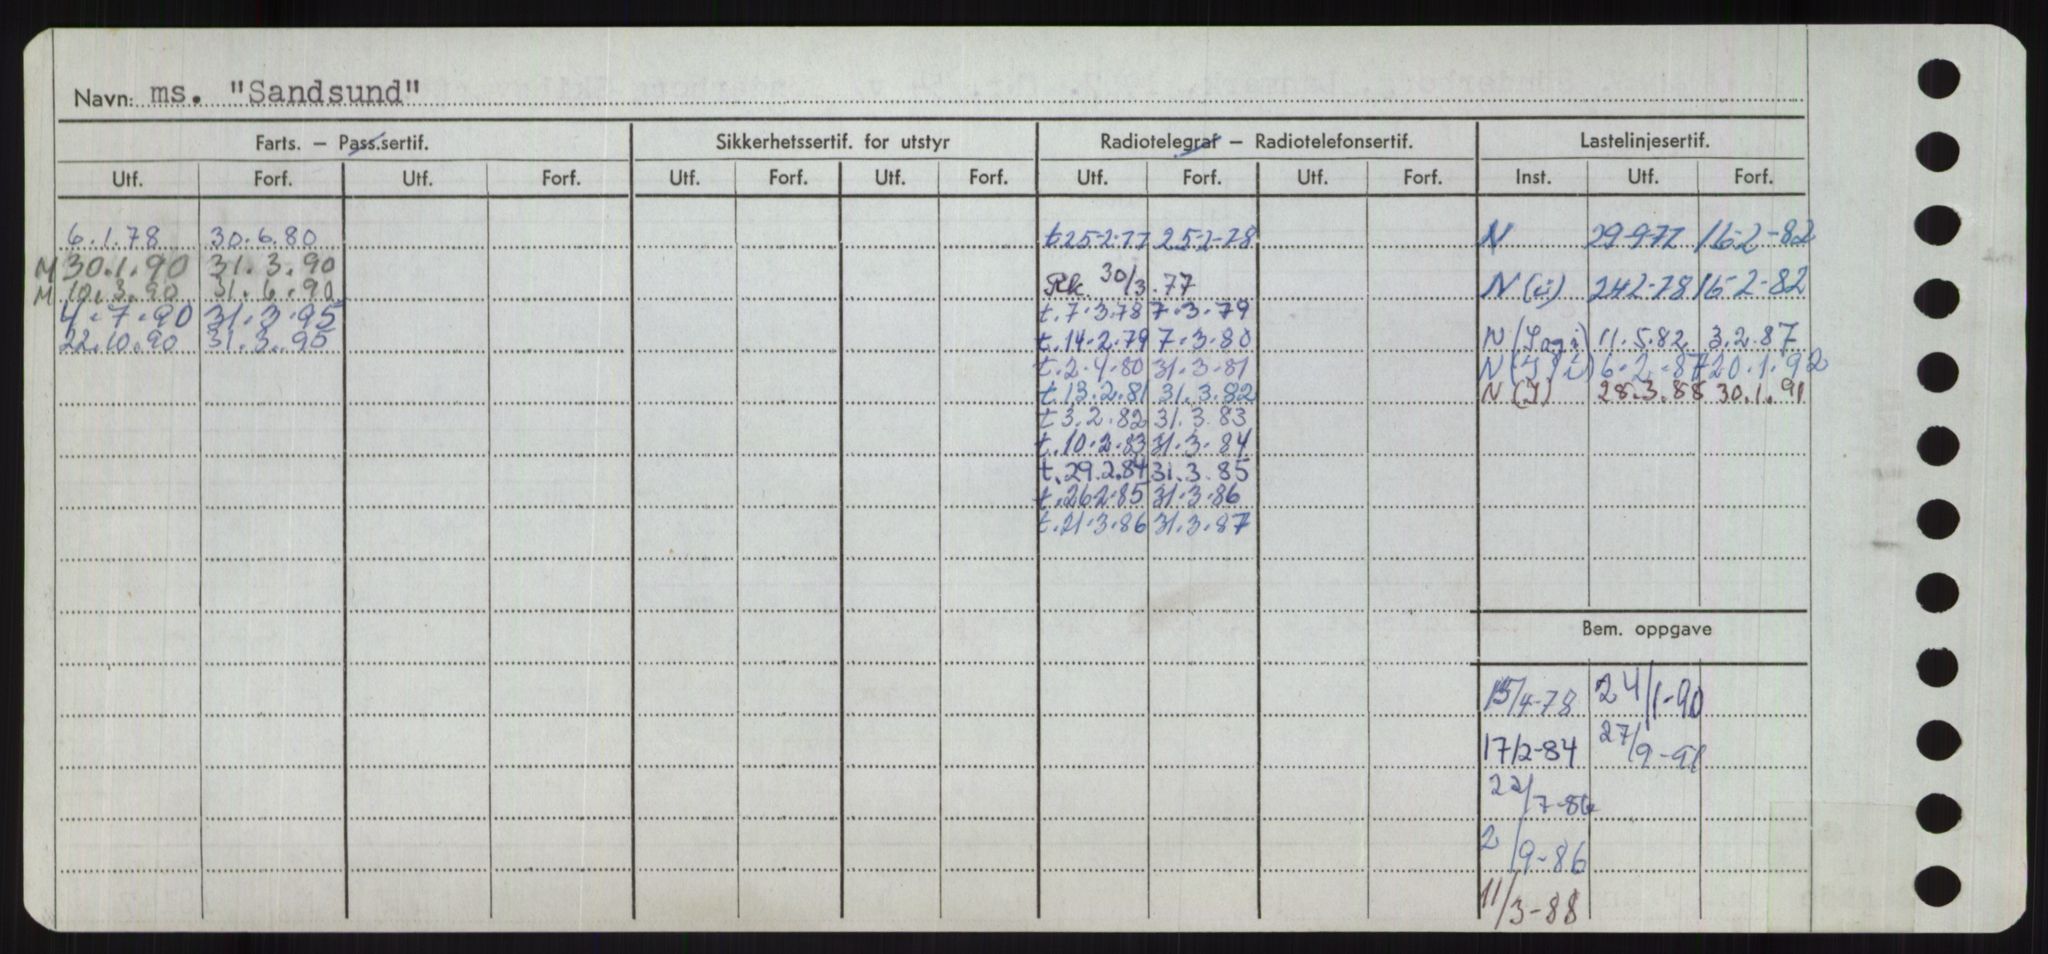 Navn: ms. "Sandsund"
Farts. — Pass.sertif. Sikkerhetssertif. for utstyr Radiotelegraf — Radiotelefonsertif. Lastelinjesertif.
Utf. Forf. Utf. Forf. Utf. Forf. Utf. Forf. Utf. Forf. Utf. Forf. Inst. Utf. Forf.
6.1.78 30.6.80 t 25-2-77 25-2-78 N 29-9-77 16-2-82
M 30.1.90 31.3.90
M 10.3.90 31.6.90 Rk. 30/3.77 N (i) 24-2-78 16-2-82
4.7.90 31.3.95 t.7.3.78 7.3.79
22.10.90 31.3.95 t.14.2.79 7.3.80 N 11.5.82 3.2.87
t.2.4.80 31.3.81 N 6.2.87 20.1.92
t.13.2.81 31.3.82 N (I) 28.3.88 30.1.91
t 3.2.82 31.3.83
t.10.2.83 31.3.84
t.29.2.84 31.3.85
t.26.2.85 31.3.86
t.21.3.86 31.3.87
Bem. oppgave
15/4-78 24/1-90
17/2-84 27/9-91
22/7-86
2/9-86
11/3-88